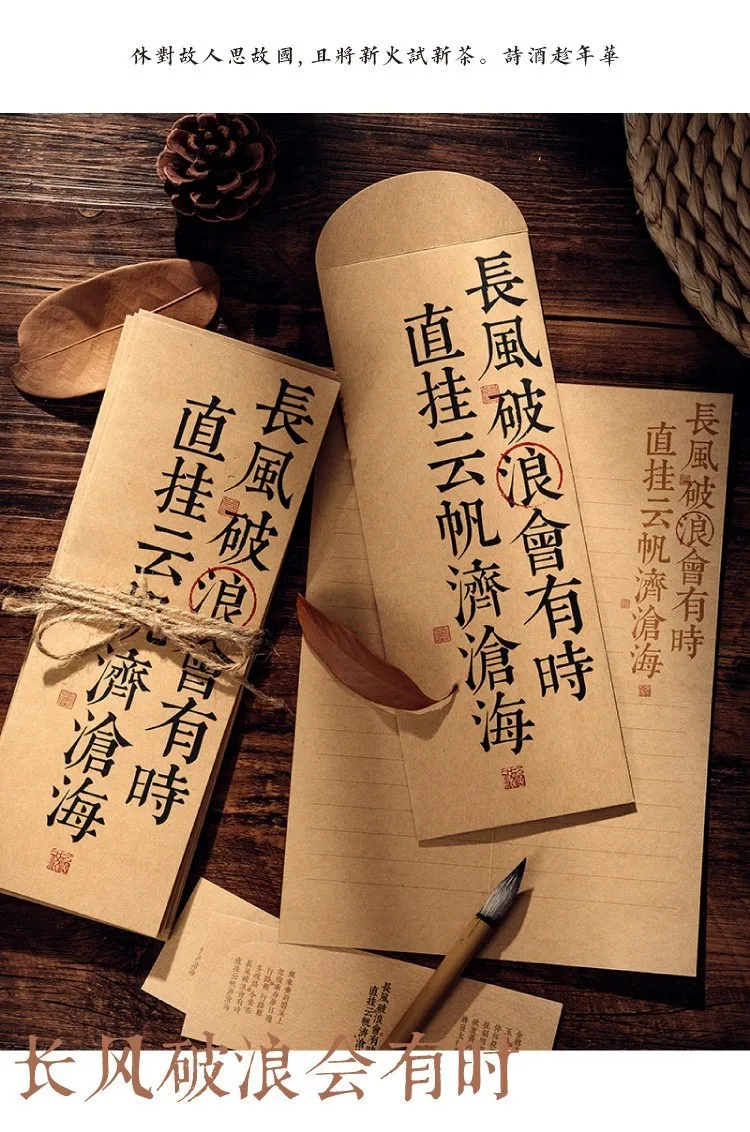 休對故人思故國，且將新火試新茶。詩酒趁年華
長風破浪會有時
直挂云帆濟滄海
長風破浪會有時
直挂云帆濟滄海
長風破浪會有時
直挂云帆濟滄海
長風破浪會有時
直挂云帆濟滄
长风破浪会有时